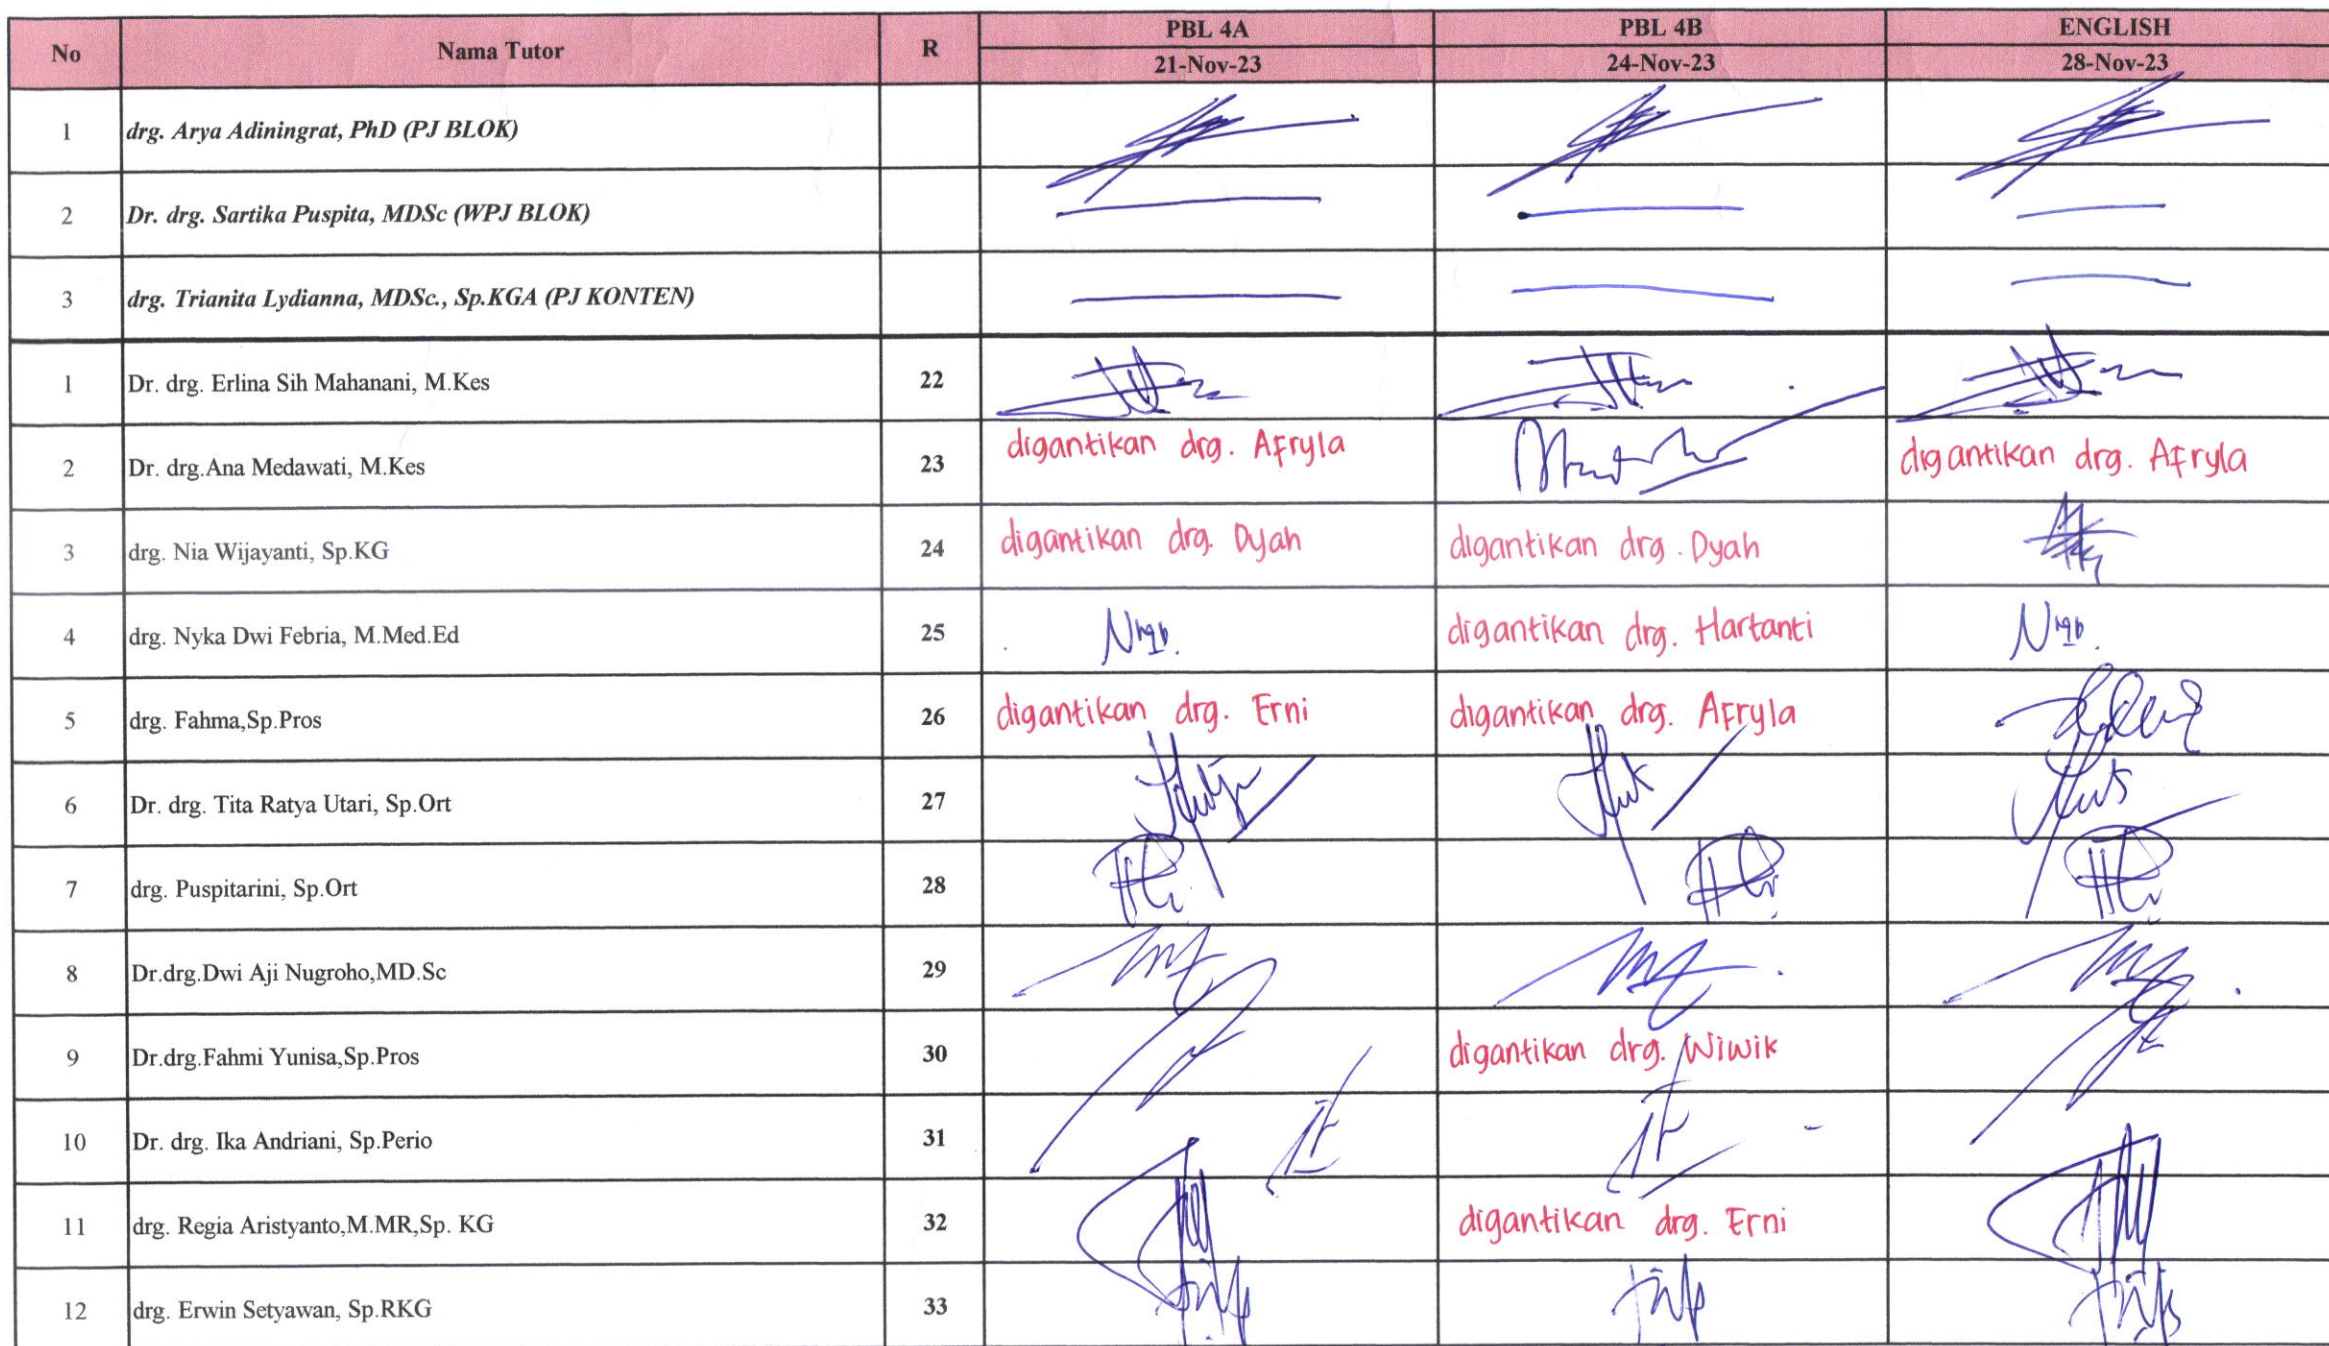 No Nama Tutor R PBL 4A PBL 4B ENGLISH
21-Nov-23 24-Nov-23 28-Nov-23
1 drg. Arya Adiningrat, PhD (PJ BLOK)
2 Dr. drg. Sartika Puspita, MDSc (WPJ BLOK)
3 drg. Trianita Lydianna, MDSc., Sp.KGA (PJ KONTEN)
1 Dr. drg. Erlina Sih Mahanani, M.Kes 22
2 Dr. drg.Ana Medawati, M.Kes 23 digantikan drg. Afryla digantikan drg. Afryla
3 drg. Nia Wijayanti, Sp.KG 24 digantikan drg. Dyah digantikan drg. Dyah
4 drg. Nyka Dwi Febria, M.Med.Ed 25 digantikan drg. Hartanti
5 drg. Fahma,Sp.Pros 26 digantikan drg. Erni digantikan drg. Afryla
6 Dr. drg. Tita Ratya Utari, Sp.Ort 27
7 drg. Puspitarini, Sp.Ort 28
8 Dr.drg.Dwi Aji Nugroho,MD.Sc 29
9 Dr.drg.Fahmi Yunisa,Sp.Pros 30 digantikan drg. Wiwik
10 Dr. drg. Ika Andriani, Sp.Perio 31
11 drg. Regia Aristyanto,M.MR,Sp. KG 32 digantikan drg. Erni
12 drg. Erwin Setyawan, Sp.RKG 33